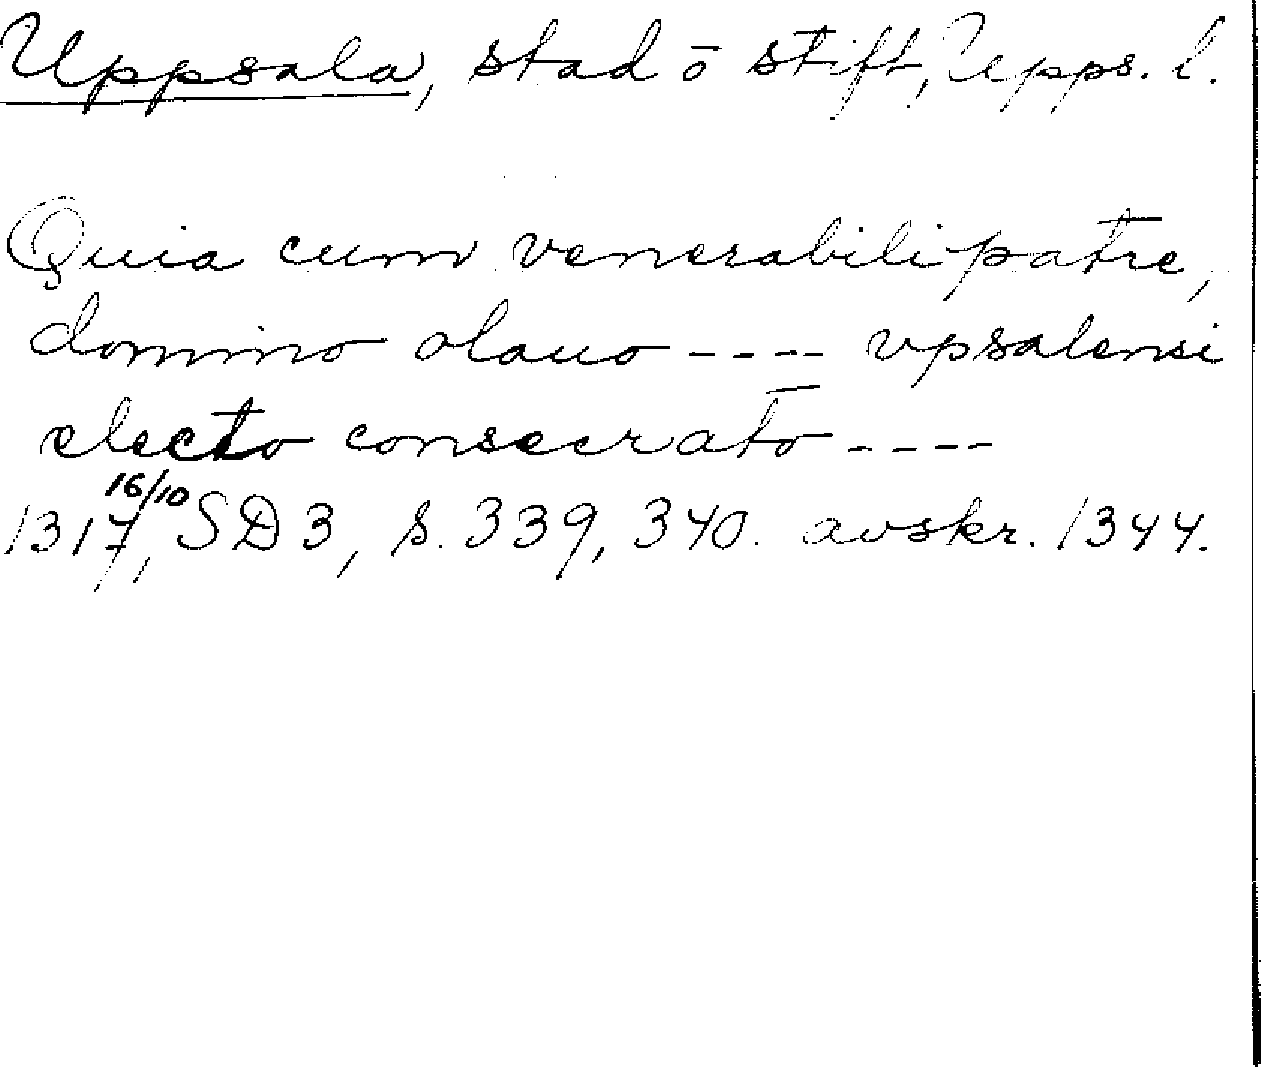 Uppsala, stad o stift, Upps. l.
Quia cum venerabili patre,
domino olauo ---- vpsalensi
electo consecrato ----
16/10
1317, SD 3, s. 339, 340. avskr. 1344.